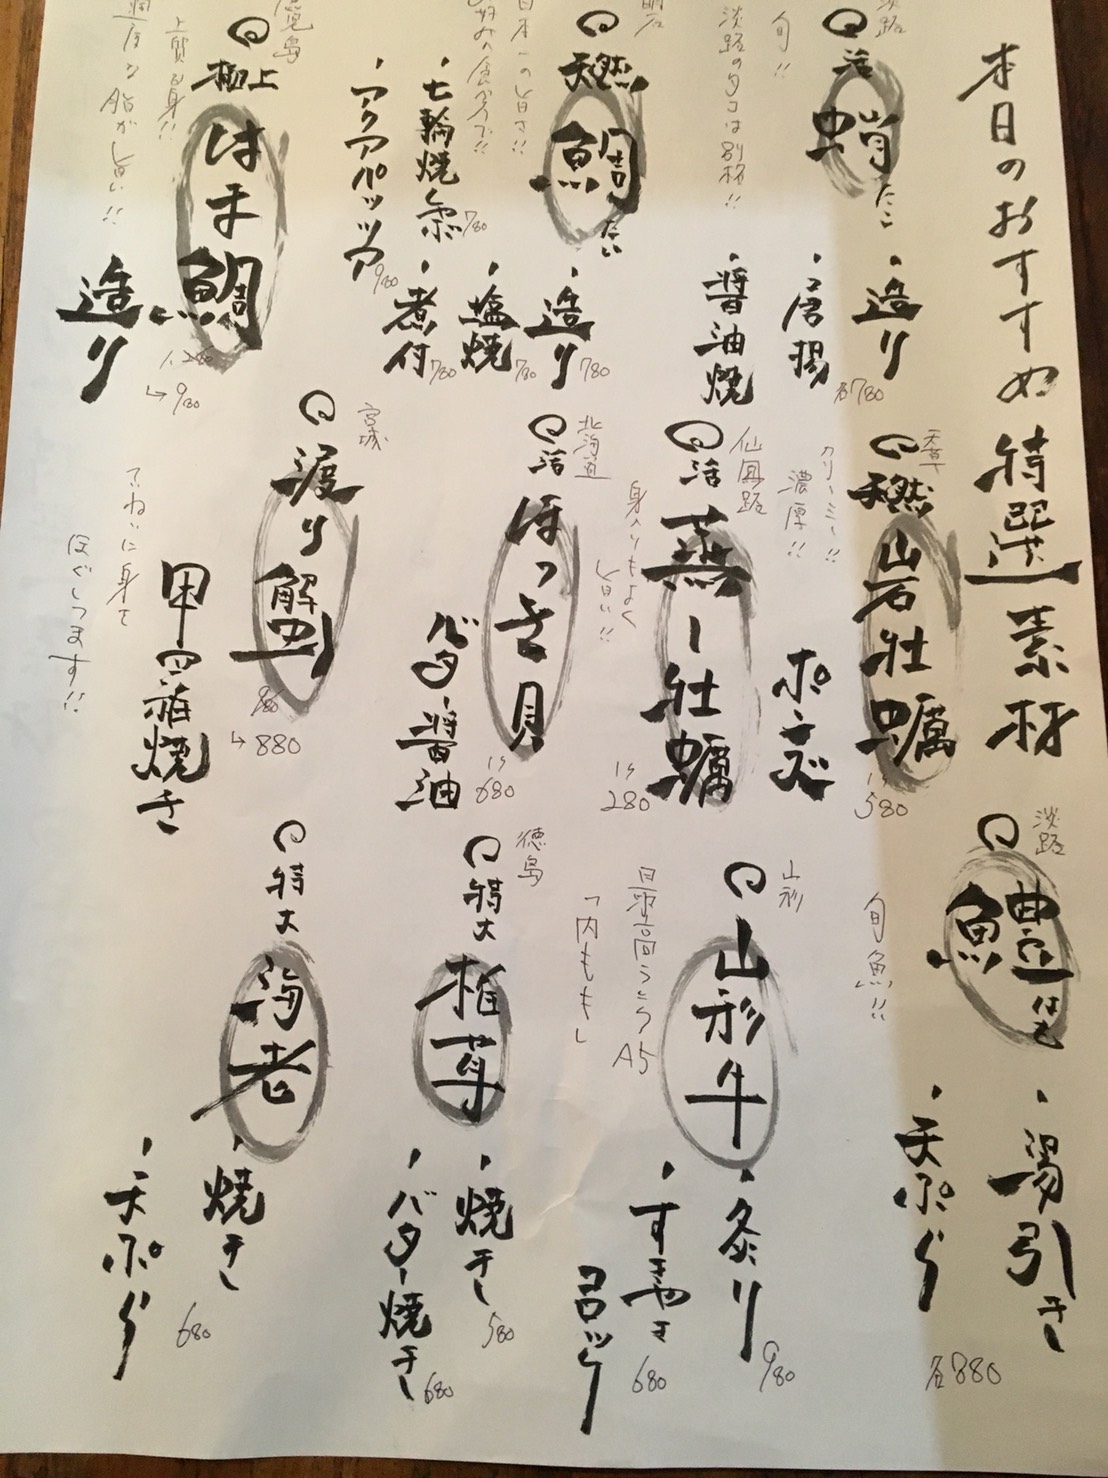 本日のおすすめ 特選素材
淡路
活
蛸
たこ
旬!!
淡路のタコは別格!!
・造り
・唐揚
・醤油焼
各780
明石
天然
鯛
たい
日本一の旨さ!!
・造り 780
・塩焼 780
・煮付 780
・七輪焼
・アクアパッツァ 980
極上
はま鯛
上質な身!!
脂が旨い!!
造り
1,280
→980
天然
岩牡蠣
クリーミー!!
濃厚!!
ポン酢
1ケ
580
仙鳳趾
活
蒸し牡蠣
身入りもよく
旨い!!
1ケ
280
北海道
活
ほっき貝
バター醤油
1ケ
680
宮城
渡り蟹
980
→880
ていねいに身を
ほぐしてます!!
甲羅焼き
淡路
鱧
はも
旬魚!!
・湯引き
・天ぷら
各880
山形
山形牛
最高ランクA5
「内もも」
・炙り 980
・すきやき
コロッケ
680
徳島
特大
椎茸
・焼き 580
・バター焼き 680
特大
海老
・焼き
・天ぷら
680